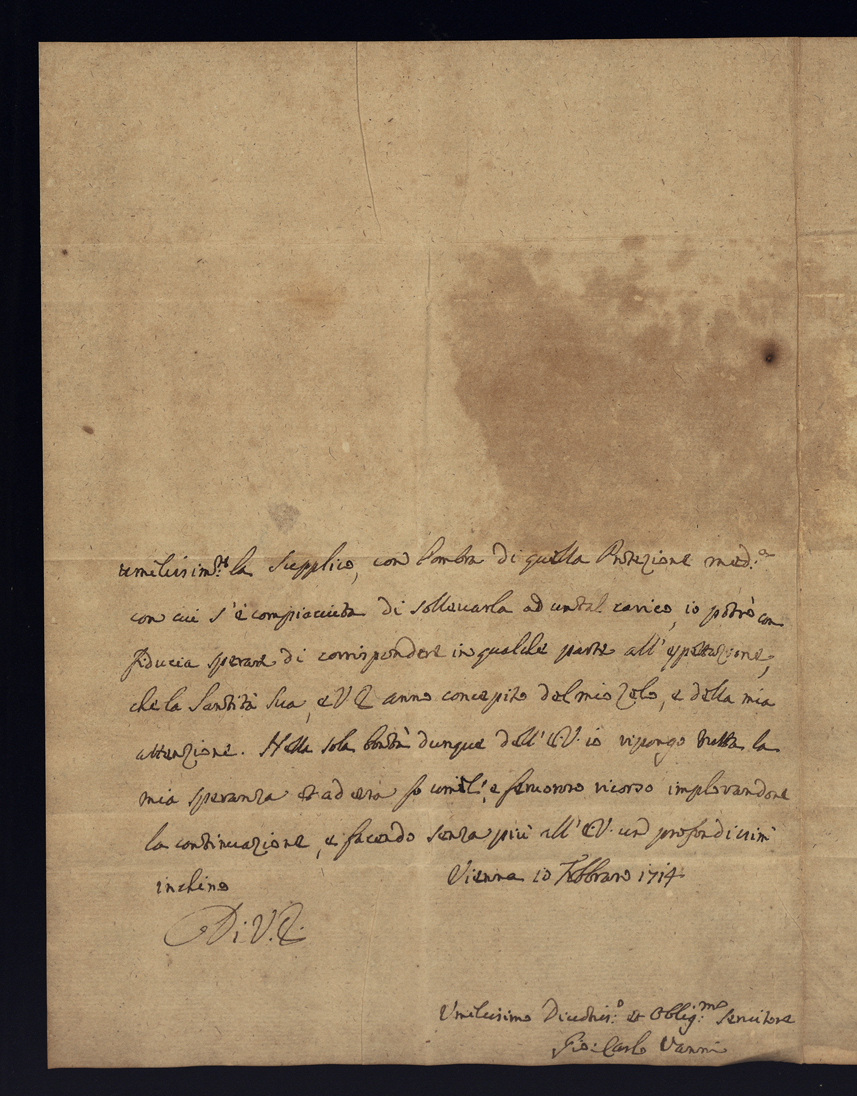 umilissim.te la supplico, con l'ombra di quella Protezione med.a
con cui s'è compiaciuta di solleuarla ad un tal carico, io potrò con
fiducia sperare di corrispondere in qualche parte all'espettazione,
che la Santità Sua, e V E anno concepito del mio Zelo, e della mia
attenzione. Nella sola bontà dunque dell'E.V. io ripongo tutta la
mia speranza et ad essa fo umil.e, e feruoroso ricorso implorandone
la continuazione, e facendo senza più all'E.V. un profondissim
inchino
Vienna 10 Febbraro 1714
Di V.E.
Umilissimo Diuotis.o et Oblig.mo Seruitore
Gio: Carlo Vanni